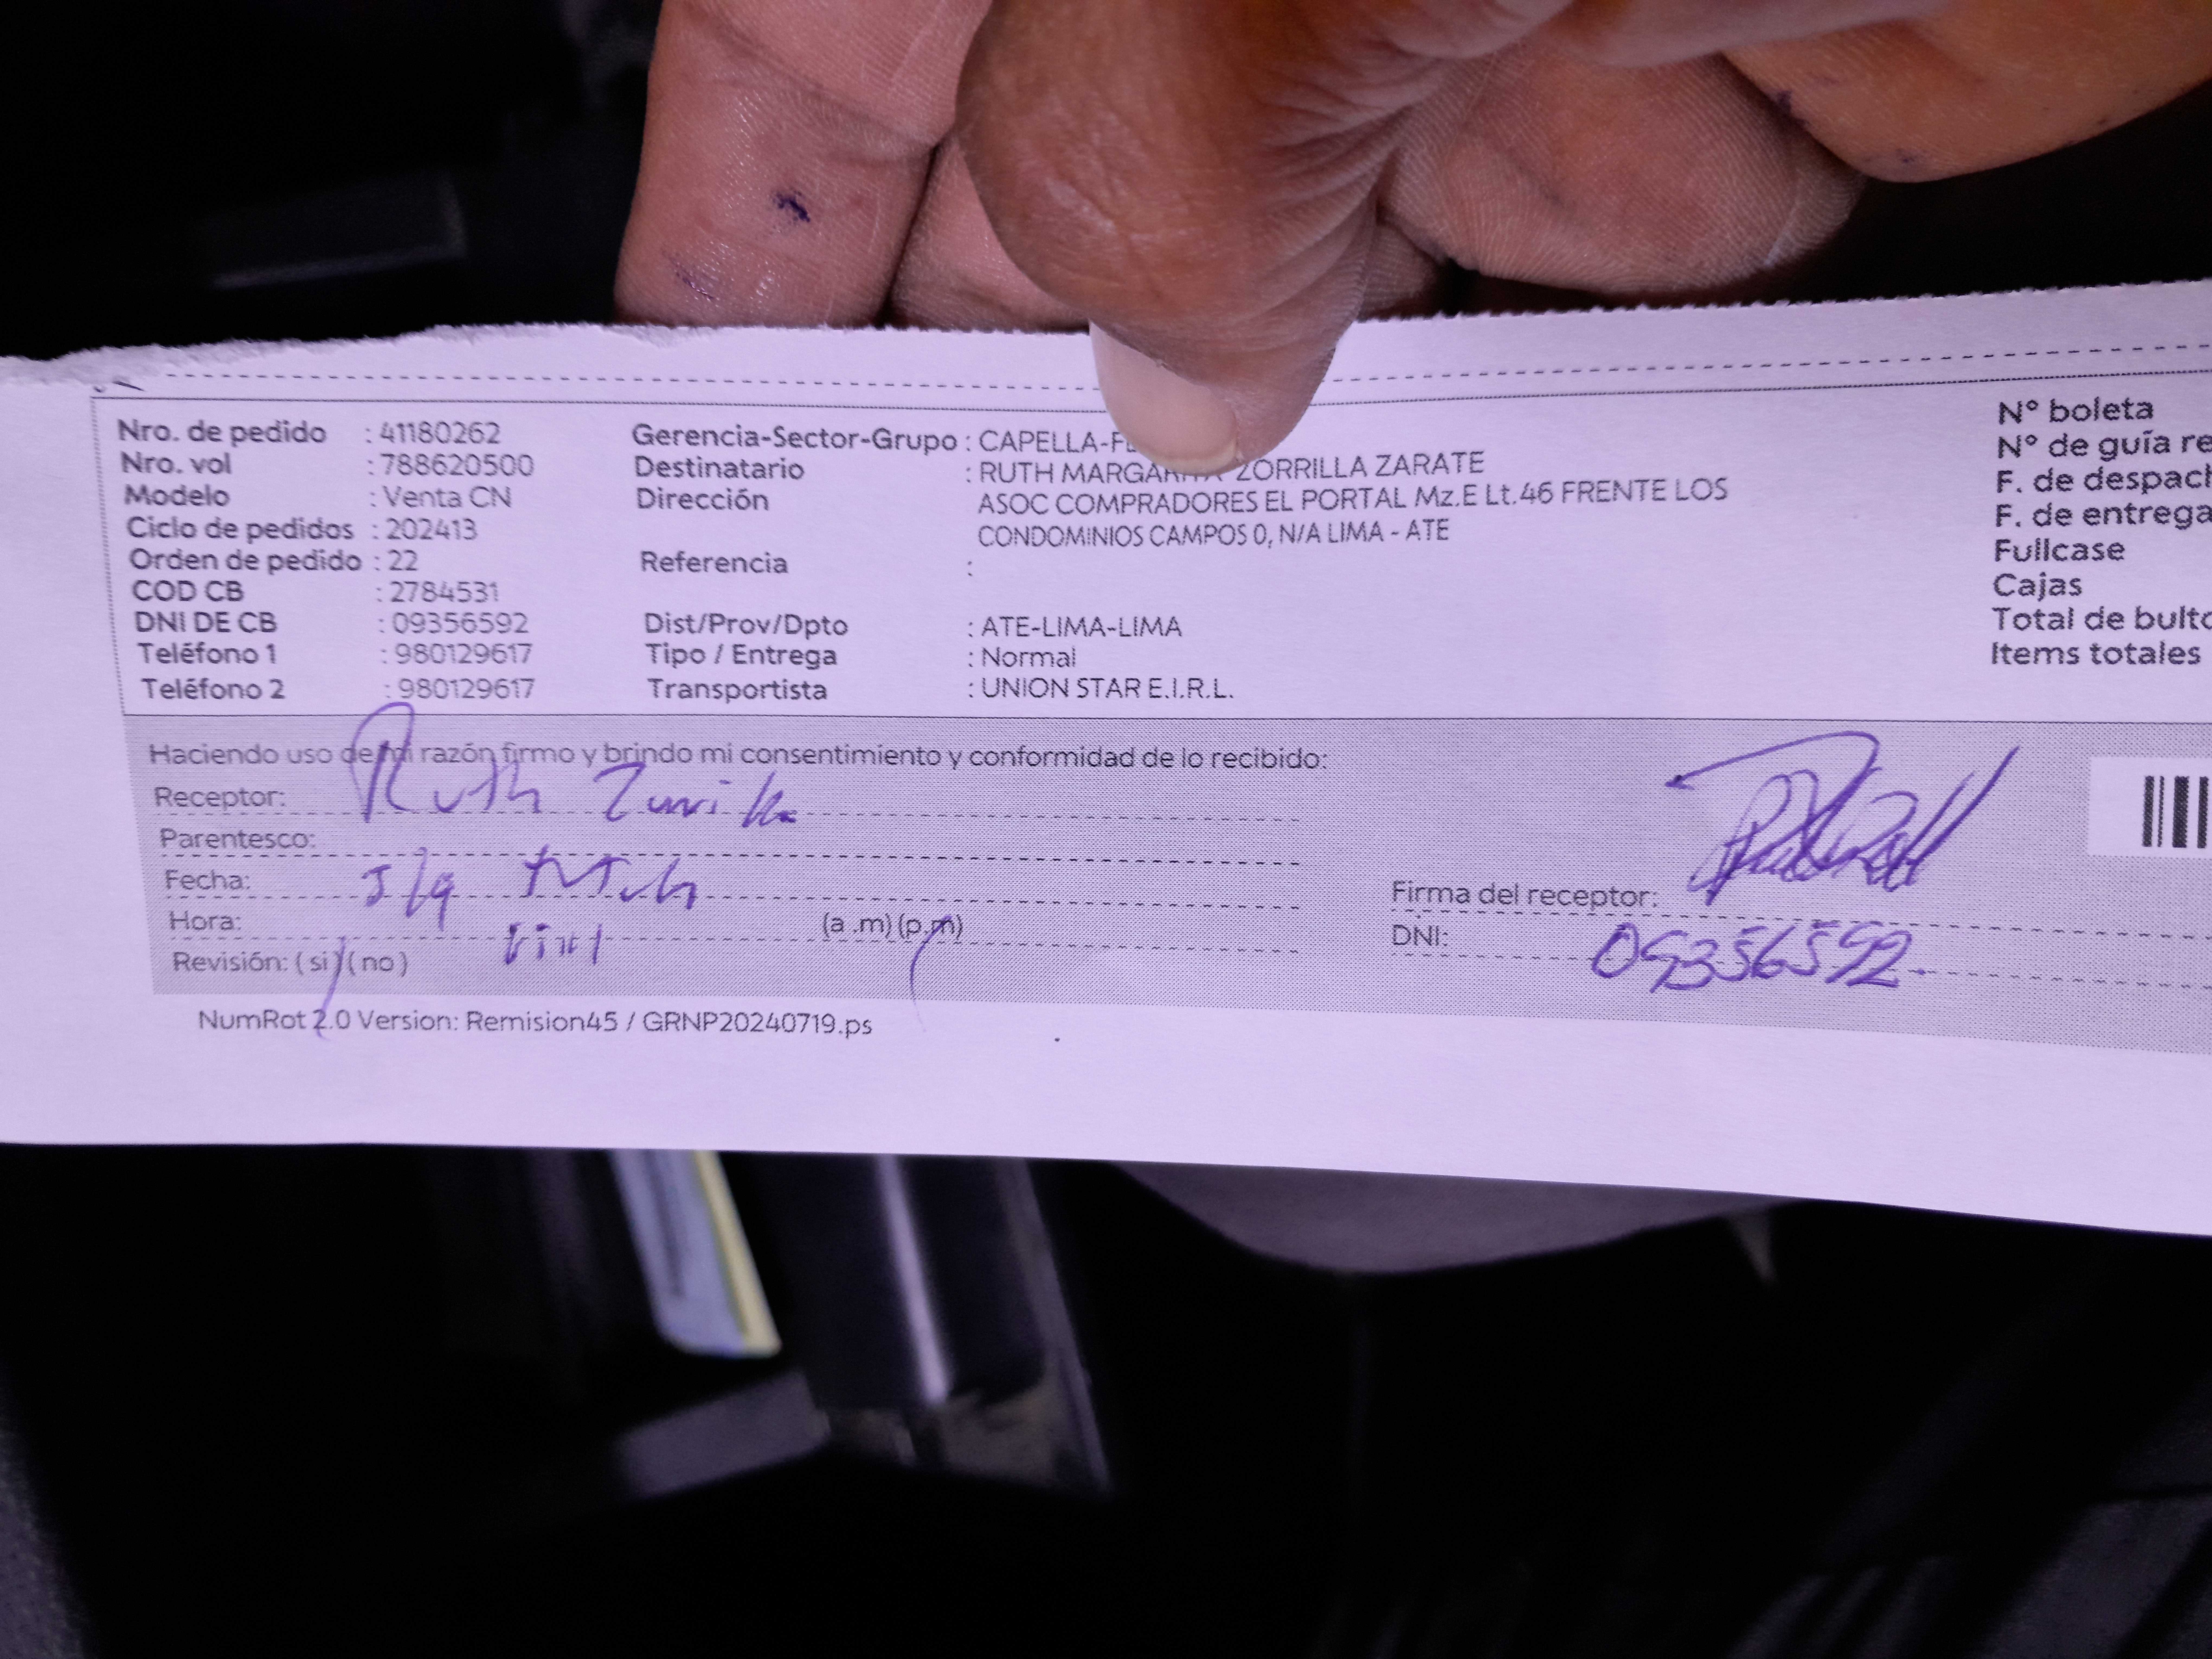 Nro. de pedido : 41180262
Nro. vol : 788620500
Modelo : Venta CN
Ciclo de pedidos : 202413
Orden de pedido : 22
COD CB : 2784531
DNI DE CB : 09356592
Teléfono 1 : 980129617
Teléfono 2 : 980129617
Gerencia-Sector-Grupo : CAPELLA-F
Destinatario : RUTH ZORRILLA ZARATE
Dirección ASOC COMPRADORES EL PORTAL Mz.E Lt.46 FRENTE LOS
CONDOMINIOS CAMPOS 0, N/A LIMA - ATE
Referencia :
Dist/Prov/Dpto : ATE-LIMA-LIMA
Tipo / Entrega : Normal
Transportista : UNION STAR E.I.R.L.
N° boleta
N° de guía re
F. de despach
F. de entrega
Fullcase
Cajas
Total de bulto
Items totales
Haciendo uso de mi razón firmo y brindo mi consentimiento y conformidad de lo recibido:
Receptor: Ruth
Parentesco:
Fecha:
Hora: (a .m) (p.m)
Revisión: ( si ) ( no )
Firma del receptor:
DNI: 09356592
NumRot 2.0 Version: Remision45 / GRNP20240719.ps